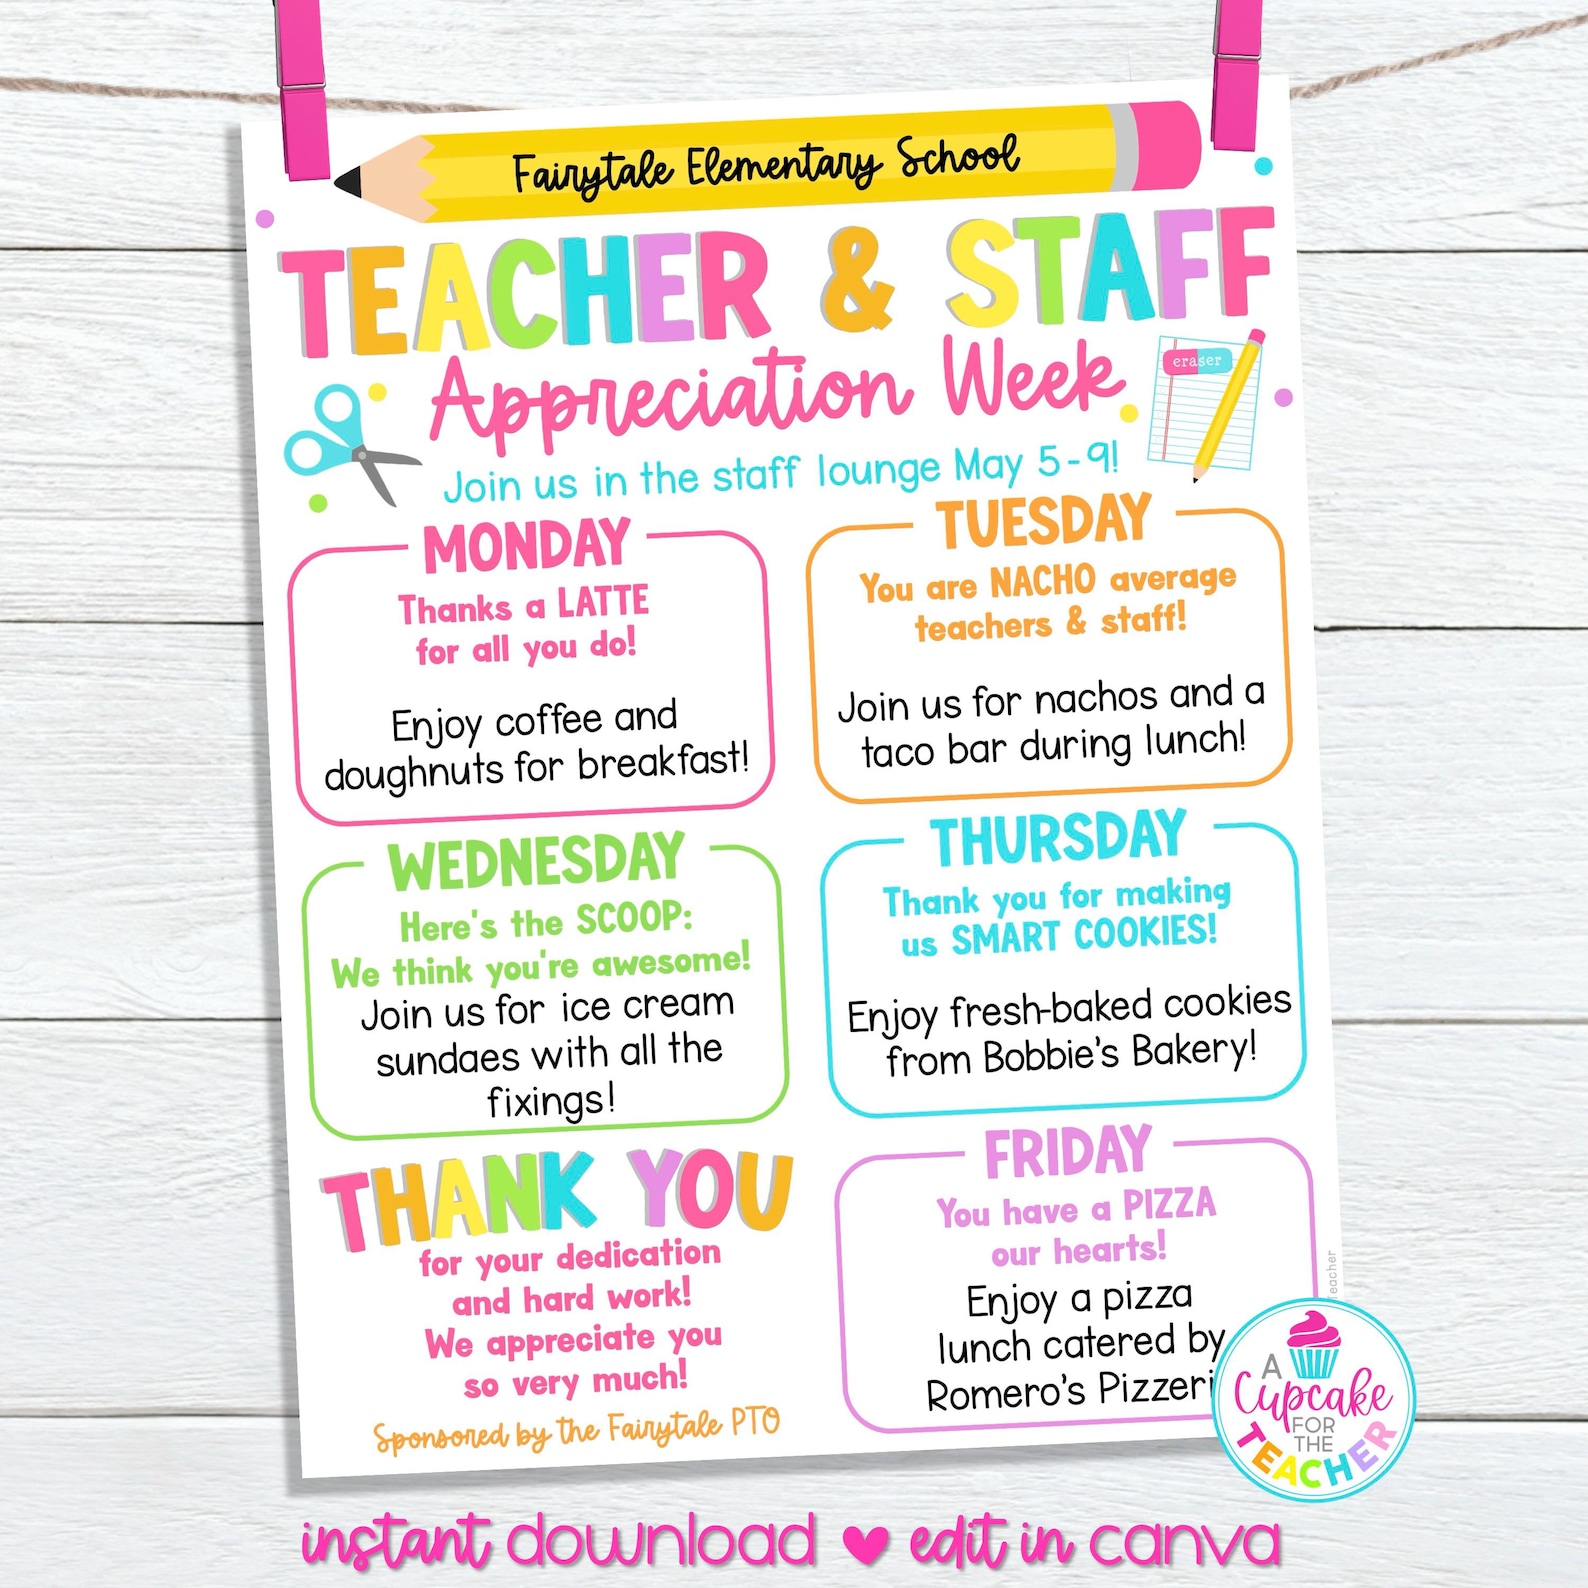 Fairytale Elementary School
TEACHER & STAFF
Appreciation Week
eraser
Join us in the staff lounge May 5-9!
MONDAY
Thanks a LATTE
for all you do!
Enjoy coffee and
doughnuts for breakfast!
TUESDAY
You are NACHO average
teachers & staff!
Join us for nachos and a
taco bar during lunch!
WEDNESDAY
Here's the SCOOP:
We think you're awesome!
Join us for ice cream
sundaes with all the
fixings!
THURSDAY
Thank you for making
us SMART COOKIES!
Enjoy fresh-baked cookies
from Bobbie's Bakery!
THANK YOU
for your dedication
and hard work!
We appreciate you
so very much!
Sponsored by the Fairytale PTO
FRIDAY
You have a PIZZA
our hearts!
Enjoy a pizza
lunch catered by
Romero's
Teacher
A
Cupcake
FOR
THE
TEACHER
instant download edit in canva